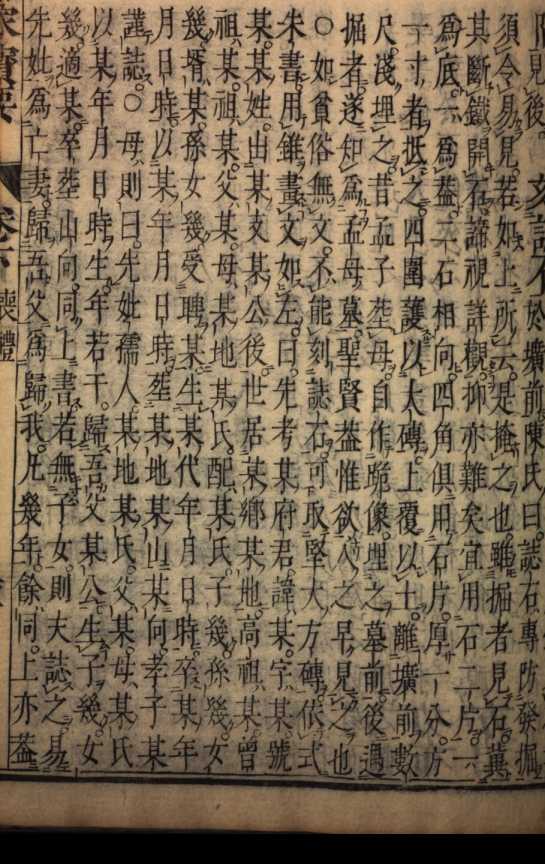 見後 文誌 於壙前陳氏曰。誌石專防發掘
須令易見。若如上所云。是掩之也。雖掘者見石。冀
其斷鐵開石。諦視詳觀。抑亦難矣。宜用石二片。一
爲底。一爲葢。二石相向。四角俱用石片。厚一分。方
一寸者抵之。四圍護以大磚。上覆以土。離壙前數
尺淺埋之。昔孟子塟母。自作跪像。埋之墓前。後過
掘者。遂知爲孟母墓。聖賢葢惟欲人之早見之也
○如貧俗無文。不能刻誌石。可取堅大方磚。依式
朱書。用錐畫文如左。曰。先考某府君諱某。字某。號
某。某姓。山某支某公後。世居某鄉某地。高祖某。曾
祖某。祖某。父某。母某地某氏。配某氏。子幾。孫幾。女
幾。壻某。孫女幾。受聘某。生某代年月日時。卒某年
月日時。以某年月日時塟某地某山某向。孝子某
謹誌。○母則曰。先妣孺人。某地某氏。父某。母某氏
以某年月日時生。年若干。歸吾父某公。生子幾。女
幾。適某。卒塟山向同上書。若無子女。則夫誌之。易
先妣爲亡妻。歸吾父爲歸我。凡幾年。餘同上。亦葢
喪禮